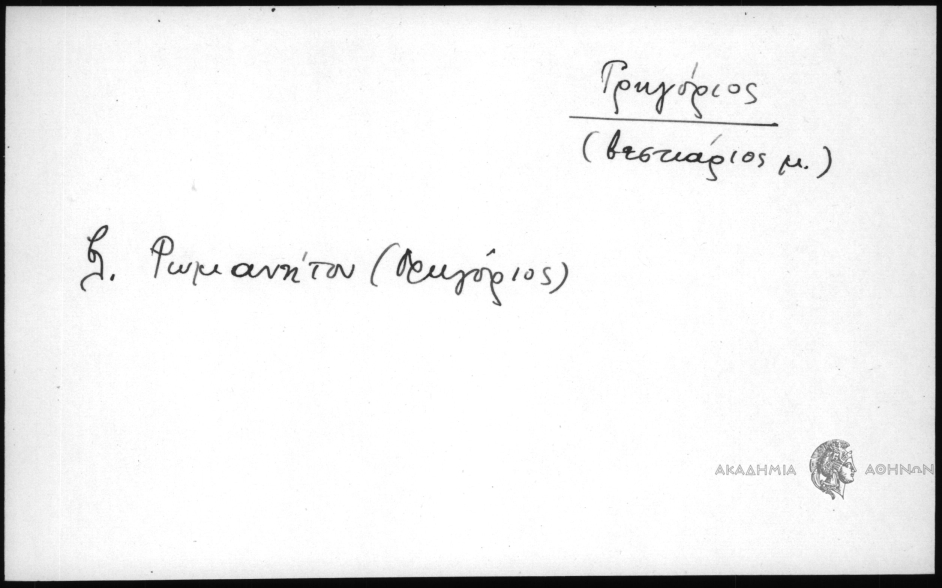 Γρηγόριος
(βεστιάριος μ.)
βλ. Ρωμανίτου (Γρηγόριος)
ΑΚΑΔΗΜΙΑ ΑΘΗΝΩΝ